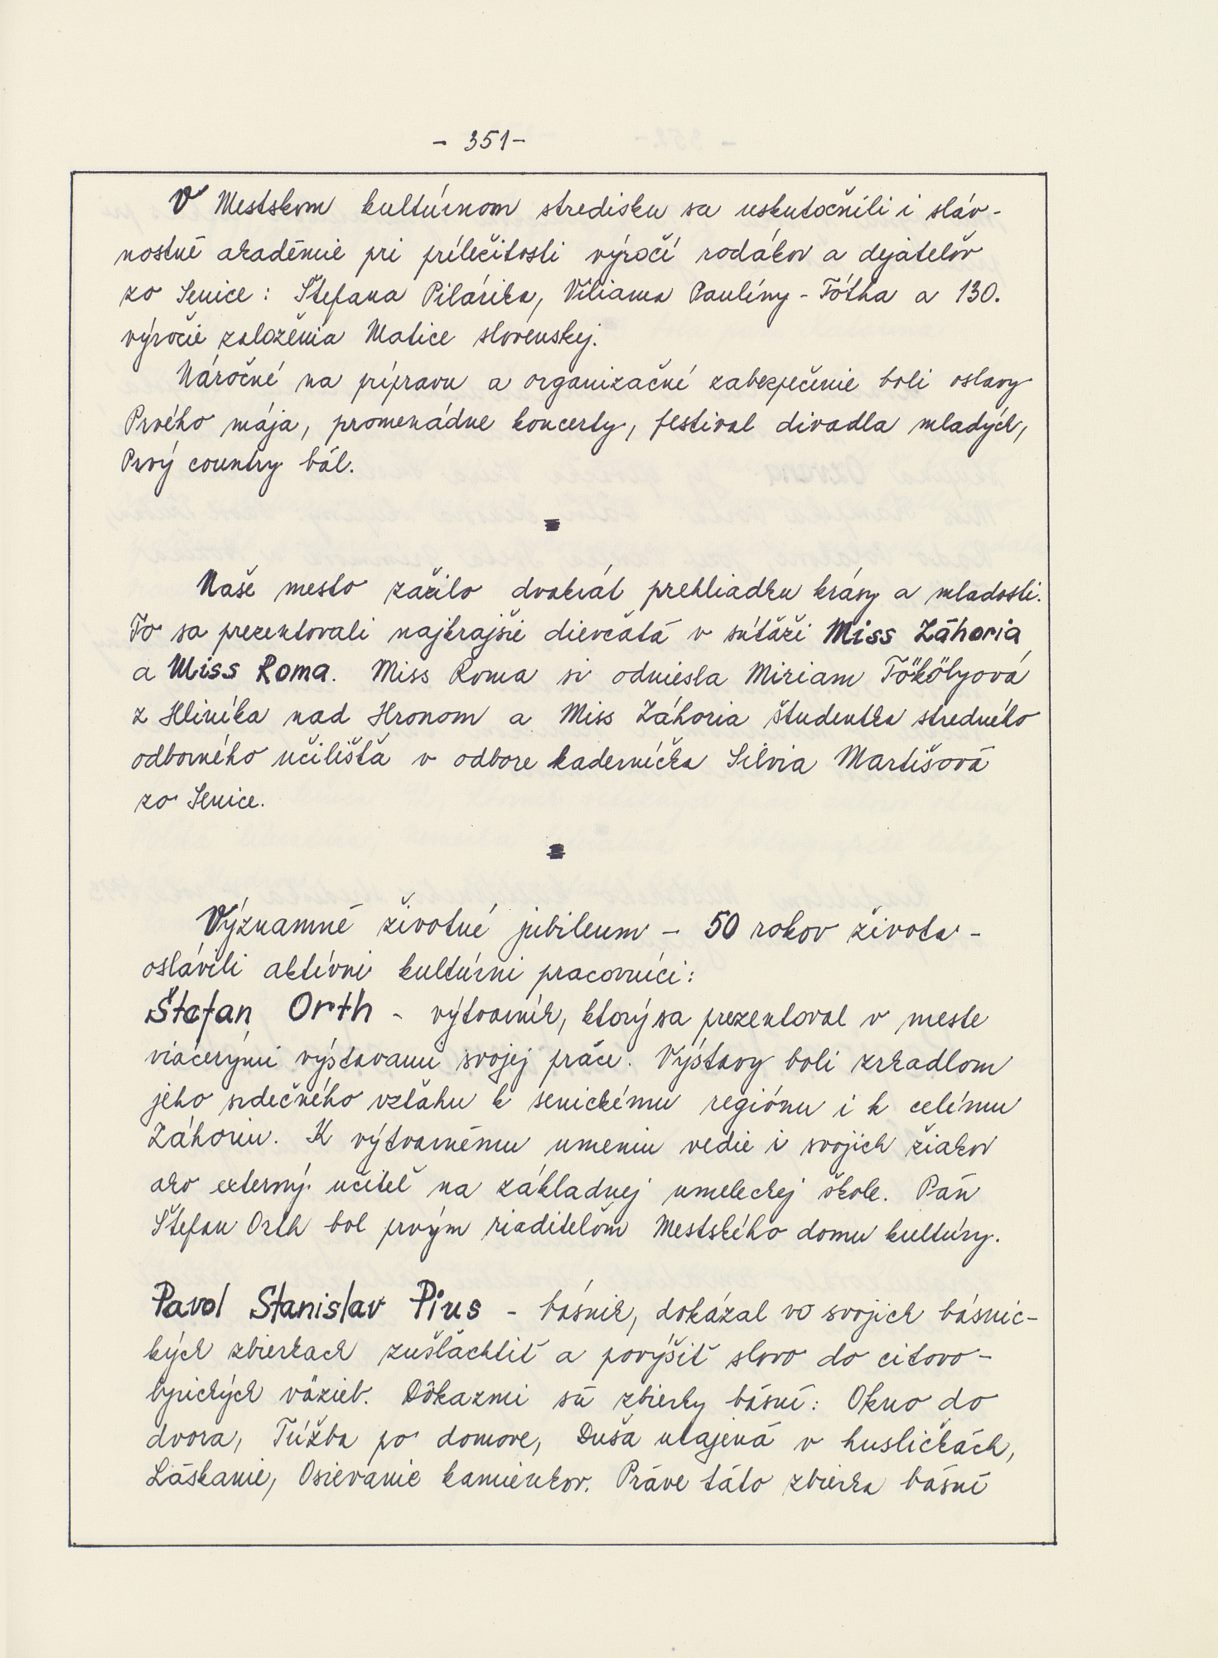 - 351 -
V Mestskom kultúrnom stredisku sa uskutočnili i sláv-
nostné akadémie pri príležitosti výročí rodákov a dejateľov
zo Senice: Štefana Pilárika, Viliama Paulíny-Tótha a 130.
výročie založenia Matice slovenskej.
Náročné na prípravu a organizačné zabezpečenie boli oslavy
Prvého mája, promenádne koncerty, festival divadla mladých,
Prvý country bál.
Naše mesto zažilo dvakrát prehliadku krásy a mladosti.
To sa prezentovali najkrajšie dievčatá v súťaži Miss Záhoria
a Miss Roma. Miss Roma si odniesla Miriam Tökölyová
z Hliníka nad Hronom a Miss Záhoria študentka stredného
odborného učilišťa v odbore kaderníčka Silvia Martišová
zo Senice.
Významné životné jubileum - 50 rokov života -
oslávili aktívni kultúrni pracovníci:
Štefan Orth - výtvarník, ktorý sa prezentoval v meste
viacerými výstavami svojej práce. Výstavy boli zrkadlom
jeho srdečného vzťahu k senickému regiónu i k celému
Záhoriu. K výtvarnému umeniu vedie i svojich žiakov
ako externý učiteľ na základnej umeleckej škole. Pán
Štefan Orth bol prvým riaditeľom Mestského domu kultúry.
Pavol Stanislav Pius - básnik, dokázal vo svojich básnic-
kých zbierkach zušľachtiť a povýšiť slovo do citovo-
lyrických väzieb. Dôkazmi sú zbierky básní: Okno do
dvora, Túžba po domove, Duša utajená v husličkách,
Láskanie, Osievanie kamienkov. Práve táto zbierka básní